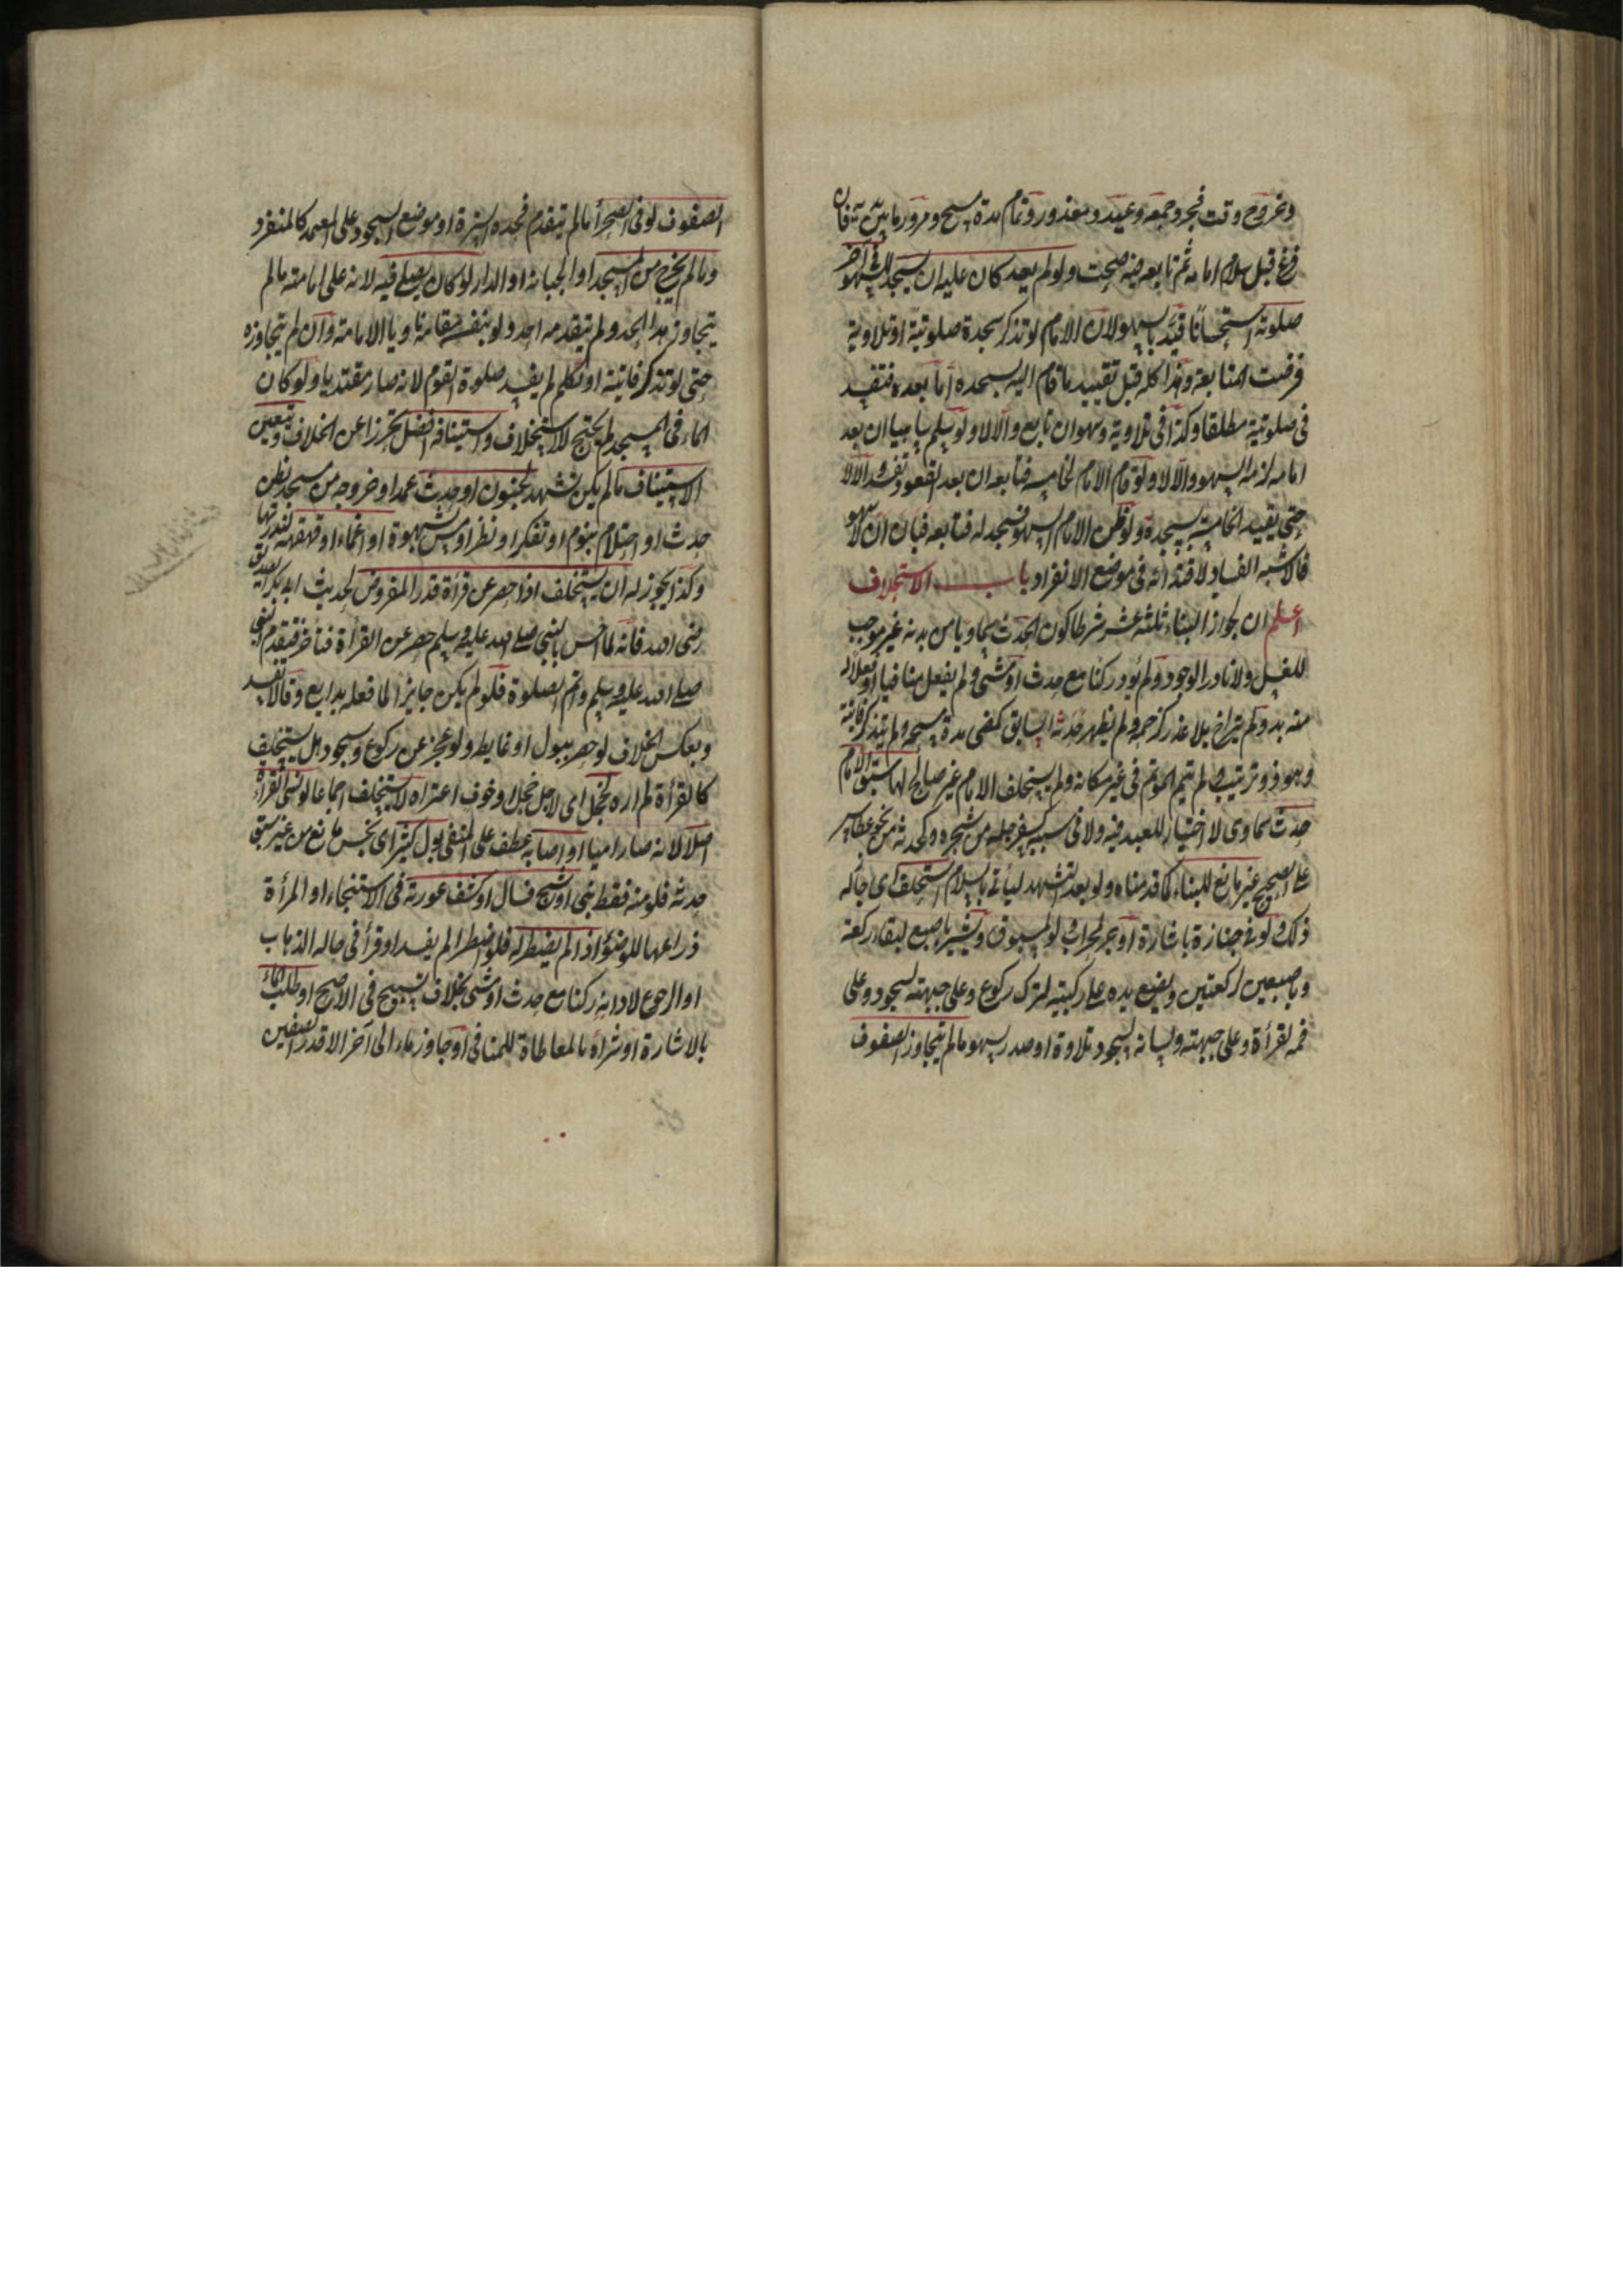 وخروج وقت فجر وجمعة وعيد ومعذور وتمام مدة مسح ومرور ما بين يديه فان
فرغ قبل سلام امامه ثم تابعه فيه صحت ولو لم يعد كان عليه ان يسجد للسهو في آخر
صلوته استحسانا قيد بالسهو لان الامام لو تذكر سجدة صلوتية او تلاوية
فرضت المتابعة وهذا كله قبل تقييد ما قام اليه بسجدة أما بعده فتفسد
في صلوتية مطلقا وكذا في تلاوية وسهو ان تابع والا لا ولو سلم ساهيا ان بعد
امامه لزمه السهو والا لا ولو قام الامام لخامسة فتابعه ان بعد القعود تفسد والا لا
حتى يقيد الخامسة بسجدة ولو ظن الامام السهو فسجد له فتابعه فبان ان لا سهو
فالاشبه الفساد لاقتدائه في موضع الانفراد باب الاستخلاف
اعلم ان لجواز البناء ثلثة عشر شرطا كون الحدث سماويا من بدنه غير موجب
للغسل ولا نادر الوجود ولم يؤد ركنا مع حدث او مشى ولم يفعل منافيا او فعلا له
منه بد ولم يتراخ بلا عذر كزحمة ولم يظهر حدثه السابق كمضى مدة مسحه ولم يتذكر فائتة
وهو ذو ترتيب ولم يتم المؤتم في غير مكانه ولم يستخلف الامام غير صالح لها سبق الامام
حدث سماوى لا اختيار للعبد فيه ولا في سببه كسفرجلة من شجرة وكحدثه من نحو عطاس
على الصحيح غير مانع للبناء كما قدمناه ولو بعد التشهد ليأتي بالسلام استخلف اى جاز له
ذلك ولو في جنازة باشارة او بجر لمحراب ولو لمسبوق ويشير باصبع لبقاء ركعة
وباصبعين لركعتين ويضع يده على ركبتيه لترك ركوع وعلى جبهته لسجود وعلى
فمه لقرأة وعلى جبهته ولسانه لسجود تلاوة او صدره لسهو ما لم يتجاوز الصفوف
الصفوف لو في الصحرأ ما لم يتقدم فحده السترة او موضع السجود على المعتمد كالمنفرد
وما لم يخرج من المسجد او الجبانة او الدار لو كان يصلى فيه لانه على امامته ما لم
يتجاوز هذا الحد ولم يتقدمه احد ولو بنفسه مقامه ناويا الامامة وان لم يتجاوزه
حتى لو تذكر فائتة او تكلم لم يفسد صلوة القوم لانه صار مقتديا ولو كان
الماء في المسجد لم يحتج للاستخلاف واستينافه افضل تحرزا عن الخلاف ويتعين
الاستيناف ما لم يكن تشهد لجنون او حدث عمدا او خروجه من مسجد بظن
حدث او احتلام بنوم او تفكر او نظر او مس بشهوة او اغماء او قهقهة لندرتها
وكذا يجوز له ان يستخلف اذا حصر عن قرأة قدر المفروض لحديث ابى بكر الصديق
رضى الله فانه لما احس بالنبي صلى الله عليه وسلم حصر عن القرأة فتأخر فتقدم النبي
صلى الله عليه وسلم واتم الصلوة فلو لم يكن جايزا لما فعله بدايع وقالا تفسد
وبعكس الخلاف لو حصر ببول او غايط ولو عجز عن ركوع وسجود هل يستخلف
كالقرأة لم اره لخجل اى لاجل خجل او خوف اعتراه لا يستخلف اجماعا لو نسي القرأة
اصلا لانه صار اميا او اصابه عطف على المنفي بول كثير اى نجس مانع من غير سبق
حدثه فلو منه فقط بنى او شج فسال او كشف عورته في الاستنجاء او المرأة
ذراعها للوضؤ اذا لم يضطر له فلو اضطر لم يفسد او قرأ في حالة الذهاب
او الرجوع لادائه ركنا مع حدث او مشى بخلاف تسبيح في الاصح او طلب الماء
بالاشارة او شراه بالمعاطاة للمنافي او جاوز ماء الى آخر الا قدر الصفين